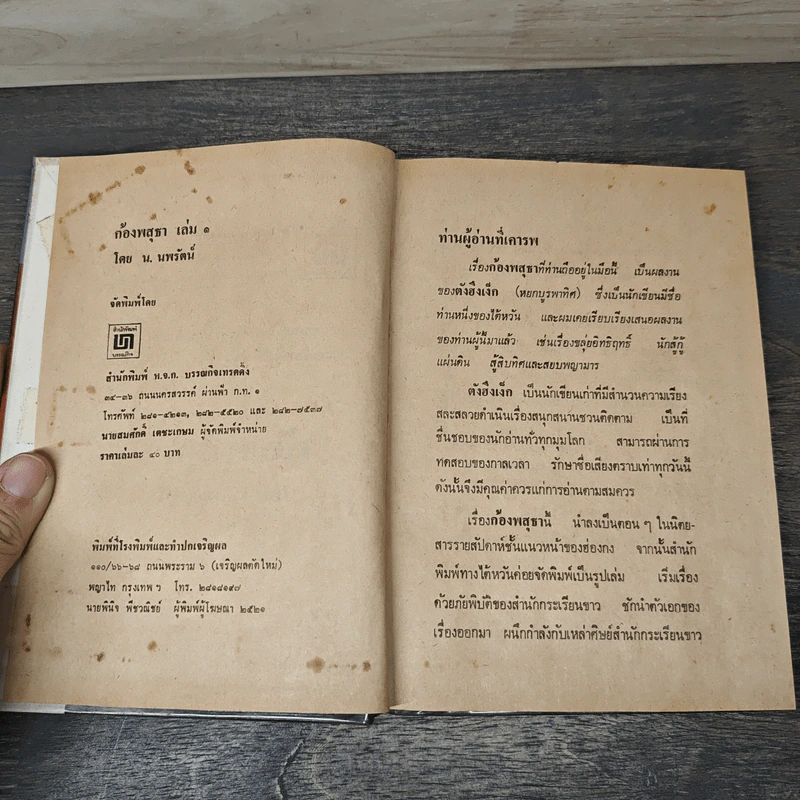 ก้องพสุธา เล่ม ๑
โดย น. นพรัตน์
จัดพิมพ์โดย
สำนักพิมพ์
บรรณกิจ
สำนักพิมพ์ ห.จ.ก. บรรณกิจเทรดดิ้ง
๓๔-๓๖ ถนนนครสวรรค์ ผ่านฟ้า ก.ท. ๑
โทรศัพท์ ๒๘๑-๔๒๑๓, ๒๘๒-๕๕๒๐ และ ๒๘๒-๗๕๓๗
นายสมศักดิ์ เตชะเกษม ผู้จัดพิมพ์จำหน่าย
ราคาเล่มละ ๔๐ บาท
พิมพ์ที่โรงพิมพ์และทำปกเจริญผล
๑๑๐/๖๖-๖๘ ถนนพระราม ๖ (เจริญผลตัดใหม่)
พญาไท กรุงเทพ ฯ โทร. ๒๘๑๘๑๙๗
นายพินิจ พืชวณิชย์ ผู้พิมพ์ผู้โฆษณา ๒๕๒๑
ท่านผู้อ่านที่เคารพ
เรื่องก้องพสุธาที่ท่านถืออยู่ในมือนี้ เป็นผลงาน
ของตังฮึงเง็ก (หยกบูรพาทิศ) ซึ่งเป็นนักเขียนมีชื่อ
ท่านหนึ่งของไต้หวัน และผมเคยเรียบเรียงเสนอผลงาน
ของท่านผู้นี้มาแล้ว เช่นเรื่องขลุ่ยอิทธิฤทธิ์ นักสู้กู้
แผ่นดิน สู้สิบทิศและสอบพญามาร
ตังฮึงเง็ก เป็นนักเขียนเก่าที่มีสำนวนความเรียง
สละสลวยดำเนินเรื่องสนุกสนานชวนติดตาม เป็นที่
ชื่นชอบของนักอ่านทั่วทุกมุมโลก สามารถผ่านการ
ทดสอบของกาลเวลา รักษาชื่อเสียงตราบเท่าทุกวันนี้
ดังนั้นจึงมีคุณค่าควรแก่การอ่านตามสมควร
เรื่องก้องพสุธานี้ นำลงเป็นตอน ๆ ในนิตย-
สารรายสัปดาห์ชั้นแนวหน้าของฮ่องกง จากนั้นสำนัก
พิมพ์ทางไต้หวันค่อยจัดพิมพ์เป็นรูปเล่ม เริ่มเรื่อง
ด้วยภัยพิบัติของสำนักกระเรียนขาว ชักนำตัวเอกของ
เรื่องออกมา ผนึกกำลังกับเหล่าศิษย์สำนักกระเรียนขาว